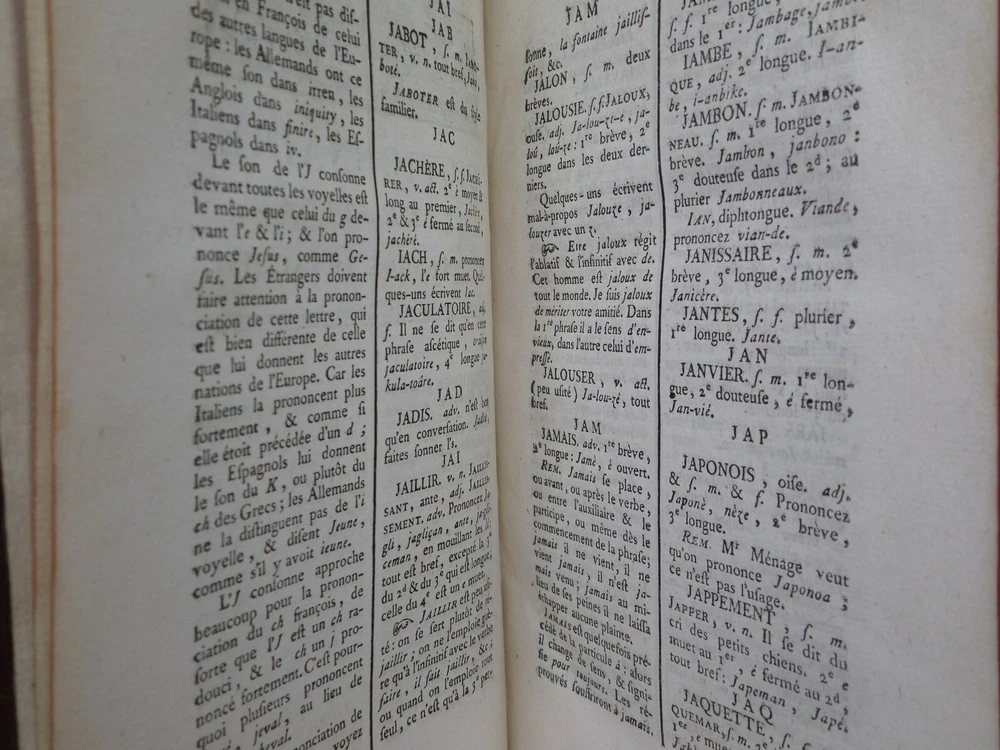 pas dif-
en François de celui
des autres langues de l'Eu-
rope : les Allemands ont ce
même ſon dans irreu, les
Anglois dans iniquity, les
Italiens dans finire, les Eſ-
pagnols dans iv.
Le ſon de l'J conſonne
devant toutes les voyelles eſt
le même que celui du g de-
vant l'e & l'i ; & l'on pro-
nonce Jeſus, comme Ge-
ſus. Les Étrangers doivent
faire attention à la pronon-
ciation de cette lettre, qui
eſt bien différente de celle
que lui donnent les autres
nations de l'Europe. Car les
Italiens la prononcent plus
fortement, & comme ſi
elle étoit précédée d'un d ;
les Eſpagnols lui donnent
le ſon du K, ou plutôt du
ch des Grecs ; les Allemands
ne la diſtinguent pas de l'i
voyelle, & diſent Jeune,
comme s'il y avoit ieune.
L'J conſonne approche
beaucoup pour la pronon-
ciation du ch françois, de
ſorte que l'J eſt un ch ra-
douci, & le ch un j pro-
noncé fortement. C'eſt pour-
quoi pluſieurs prononcent
jeval, au lieu de
cheval.
JAI
JAB
JABOT, ſ. m. JABO-
TER, v. n. tout bref, Jabo,
boté.
JABOTER eſt du ſtyle
familier.
JAC
JACHÈRE, ſ. f. JACHÉ-
RER, v. act. 2e è moyen &
long au premier, Jachère,
2e & 3e é fermé au ſecond,
jachéré.
IACH, ſ. m. prononcez
I-ack, l'e fort muet. Quel-
ques-uns écrivent Iac.
JACULATOIRE, adj.
f. Il ne ſe dit qu'en cette
phraſe aſcétique, oraiſon
jaculatoire, 4e longue ja-
kula-toâre.
JAD
JADIS. adv. n'eſt bon
qu'en converſation. Jadis,
faites ſonner l's.
JAI
JAILLIR. v. n. JAILLIS-
SANT, ante, adj. JAILLIS-
SEMENT. adv. Prononcez Ja-
gli, jagliçan, ante, jagli-
ceman, en mouillant les ll :
tout eſt bref, excepté la 3e
du 2d & du 3e qui eſt longue,
celle du 4e eſt un e muet.
☞ JAILLIR eſt peu uſi-
té : on ſe ſert plutôt de re-
jaillir ; on ne l'emploie gué-
re qu'à l'infinitif avec le verbe
faire, il fait jaillir, &c ;
ou quand on l'emploie tout
ſeul, ce n'eſt qu'à la 3e perſ.
JAM
ſonne, la fontaine jailliſ-
ſoit, &c.
JALON, ſ. m. deux
brèves.
JALOUSIE. ſ. f. JALOUX,
ouſe. adj. Ja-lou-zi-e, ja-
loû, loû-ze : 1re brève, 2e
longue dans les deux der-
niers.
Quelques-uns écrivent
mal-à-propos Jalouze, ja-
louzer avec un z.
☞ Etre jaloux régit
l'ablatif & l'infinitif avec de.
Cet homme eſt jaloux de
tout le monde. Je ſuis jaloux
de mériter votre amitié. Dans
la 1re phraſe il a le ſens d'en-
vieux, dans l'autre celui d'em-
preſſé.
JALOUSER, v. act.
(peu uſité) Ja-lou-zé, tout
bref.
JAM
JAMAIS. adv. 1re brève,
2e longue : Jamè, è ouvert.
REM. Jamais ſe place,
ou avant, ou après le verbe,
ou entre l'auxiliaire & le
participe, ou même dès le
commencement de la phraſe ;
jamais il ne vient, il ne
vient jamais, il n'eſt ja-
mais venu ; jamais au mi-
lieu de ſes peines il ne laiſſa
échapper aucune plainte.
JAMAIS eſt quelquefois pré-
cédé de la particule à : alors
il change de ſens, & ſigni-
fie pour toujours. Les ré-
prouvés ſouffriront à jamais.
ſ. f. 1re longue,
dans le 1er : Jambage, jambe
IAMBE, ſ. m. IAMBI-
QUE, adj. 2e longue. I-an-
be, i-anbike.
JAMBON. ſ. m. JAMBON-
NEAU. ſ. m. 1re longue, 2e
brève. Jambon, janbono :
3e douteuſe dans le 2d ; au
plurier Jambonneaux.
IAN, diphtongue. Viande,
prononcez vian-de.
JANISSAIRE, ſ. m. 2e
brève, 3e longue, è moyen.
Janicère.
JANTES, ſ. f. plurier,
1re longue. Jante.
JAN
JANVIER. ſ. m. 1re lon-
gue, 2e douteuſe, é fermé,
Jan-vié.
JAP
JAPONOIS, oiſe. adj.
& ſ. m. & f. Prononcez
Japonè, nèze, 2e brève,
3e longue.
REM. Mr Ménage veut
qu'on prononce Japonoa ;
ce n'eſt pas l'uſage.
JAPPEMENT, ſ. m.
JAPPER, v. n. Il ſe dit du
cri des petits chiens. 2e e
muet au 1er, é fermé au 2d,
tout bref : Japeman, Japé.
JAQ
JAQUETTE,
QUEMAR, ſ. m.
1er, e muet